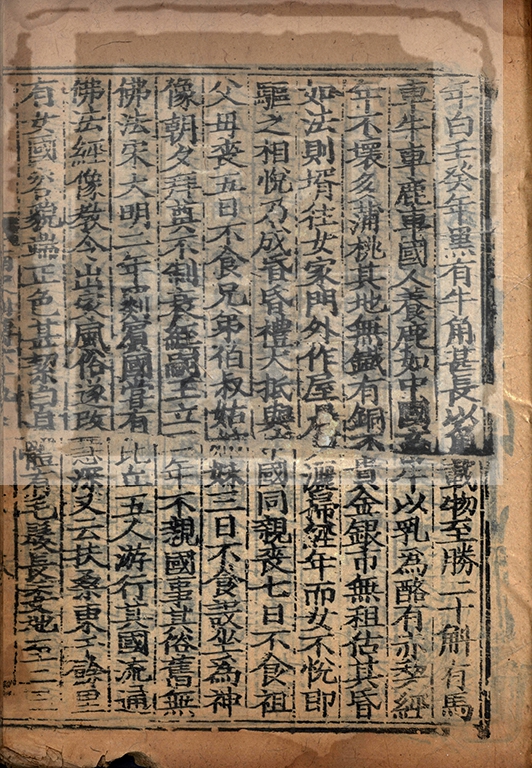 年白壬癸年黒有牛角甚長以角載物至勝二十斛有馬
車牛車鹿車國人養鹿如中國畜牛以乳為酪有赤梨經
年不壞多蒲桃其地無鐵有銅不貴金銀市無租估其昏
如法則壻往女家門外作屋灑掃經年而女不悅即
驅之相悅乃成昏昏禮大抵與中國同親喪七日不食祖
父母喪五日不食兄弟伯叔姑姊妹三日不食設坐為神
像朝夕拜奠不制衰絰嗣王立三年不親國事其俗舊無
佛法宋大明二年罽賓國嘗有比丘五人游行其國流通
佛法經像教令出家風俗遂改慧深又云扶桑東千餘里
有女國容貌端正色甚絜白身體有毛髮長委地至二三